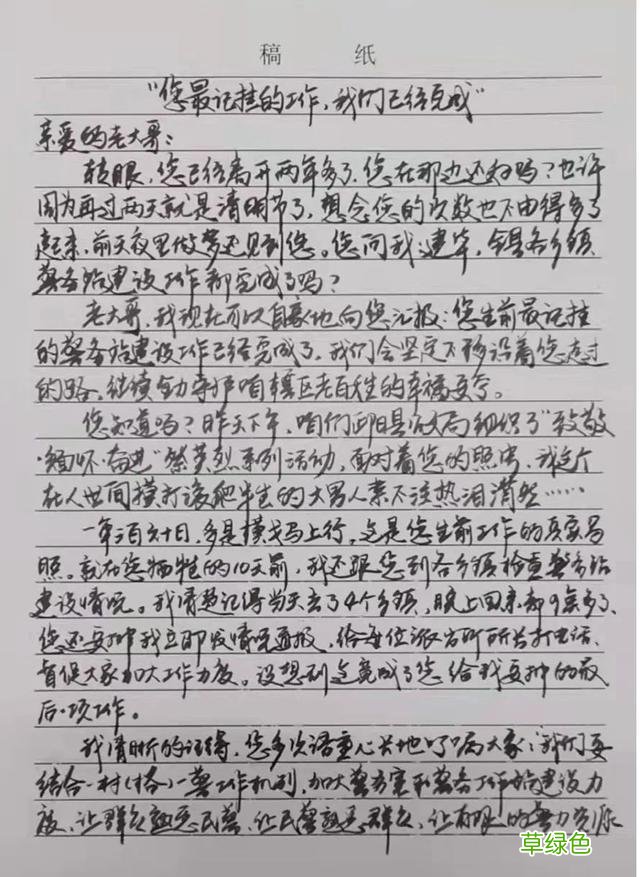 稿 纸
"您最记挂的工作，我们已经完成"
亲爱的老大哥：
转眼，您已经离开两年多了，您在那边还好吗？也许
因为再过两天就是清明节了，想念您的次数也不由得多了
起来，前天夜里做梦还见到您。您问我建华，全县各乡镇
警务站建设工作都完成了吗？
老大哥，我现在可以自豪地向您汇报：您生前最记挂
的警务站建设工作已经完成了，我们会坚定不移沿着您走过
的路，继续全力守护咱辖区老百姓的幸福安宁。
您知道吗？昨天下午，咱们即县公安局组织了"致敬
·缅怀·奋进"祭英烈系列活动，面对着您的照片，我这个
在人世间摸打滚爬半生的大男人禁不住热泪潸然……
一年三百六十日，多是横戈马上行，这是您生前工作的真实写
照。就在您牺牲的10天前，我还跟您到各乡镇检查警务站
建设情况。我清楚记得当天去了4个乡镇，晚上回来都9点多了，
您还安排我立即发情况通报，给每位派出所所长打电话，
督促大家加大工作力度。没想到这竟成了您给我安排的最
后一项工作。
我清晰的记得，您多次语重心长地叮嘱大家：我们要
结合一村(格)一警工作机制，加大警务室和警务工作站建设力
度，让群众熟悉民警，让民警熟悉群众，让有限的警力资源
草绿色